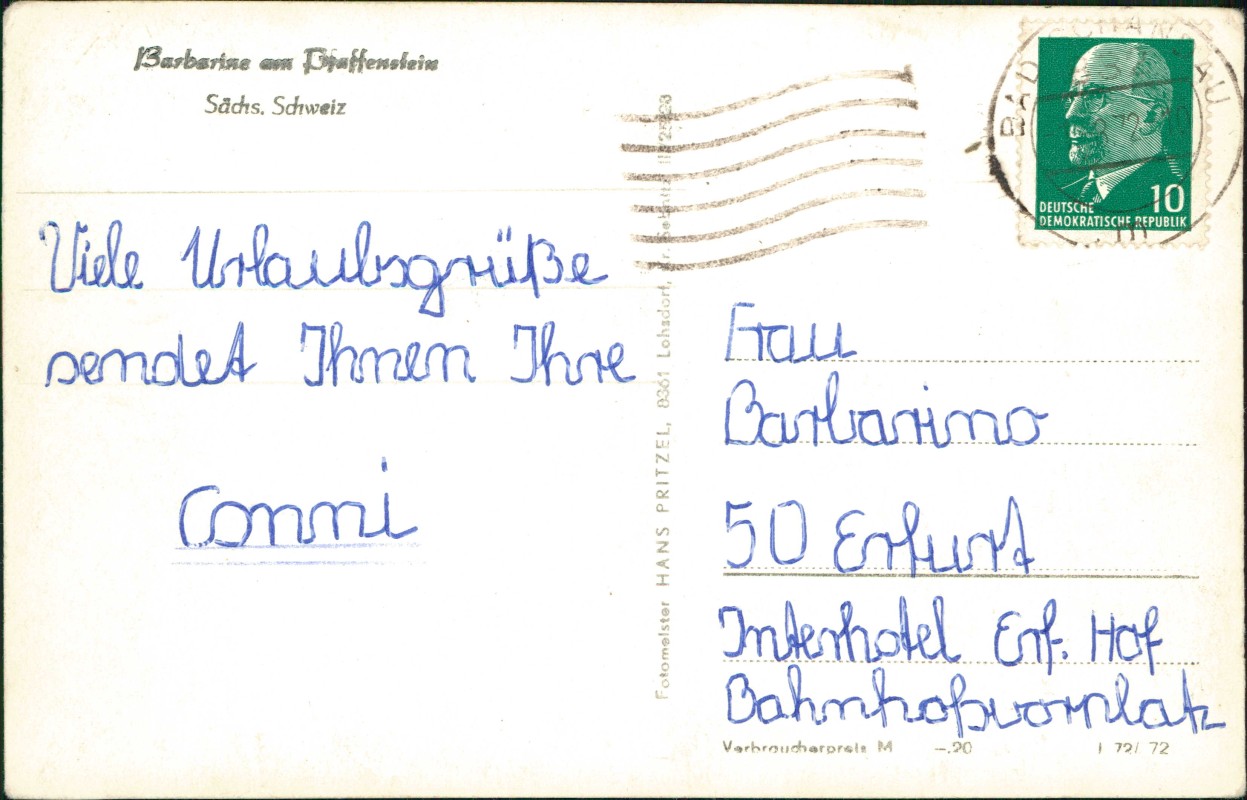 Barbarine am Pfaffenstein
Sächs. Schweiz
Viele Urlaubsgrüße
sendet Ihnen Ihre
Conni
Fotomeister HANS PRITZEL, 8361 Lohsdorf, Kr. Sebnitz
BAD SCHANDAU
72
10
DEUTSCHE
DEMOKRATISCHE REPUBLIK
Frau
Barbarino
50 Erfurt
Interhotel Erf. Hof
Bahnhofsvorplatz
Verbraucherpreis M –.20 I 72/ 72